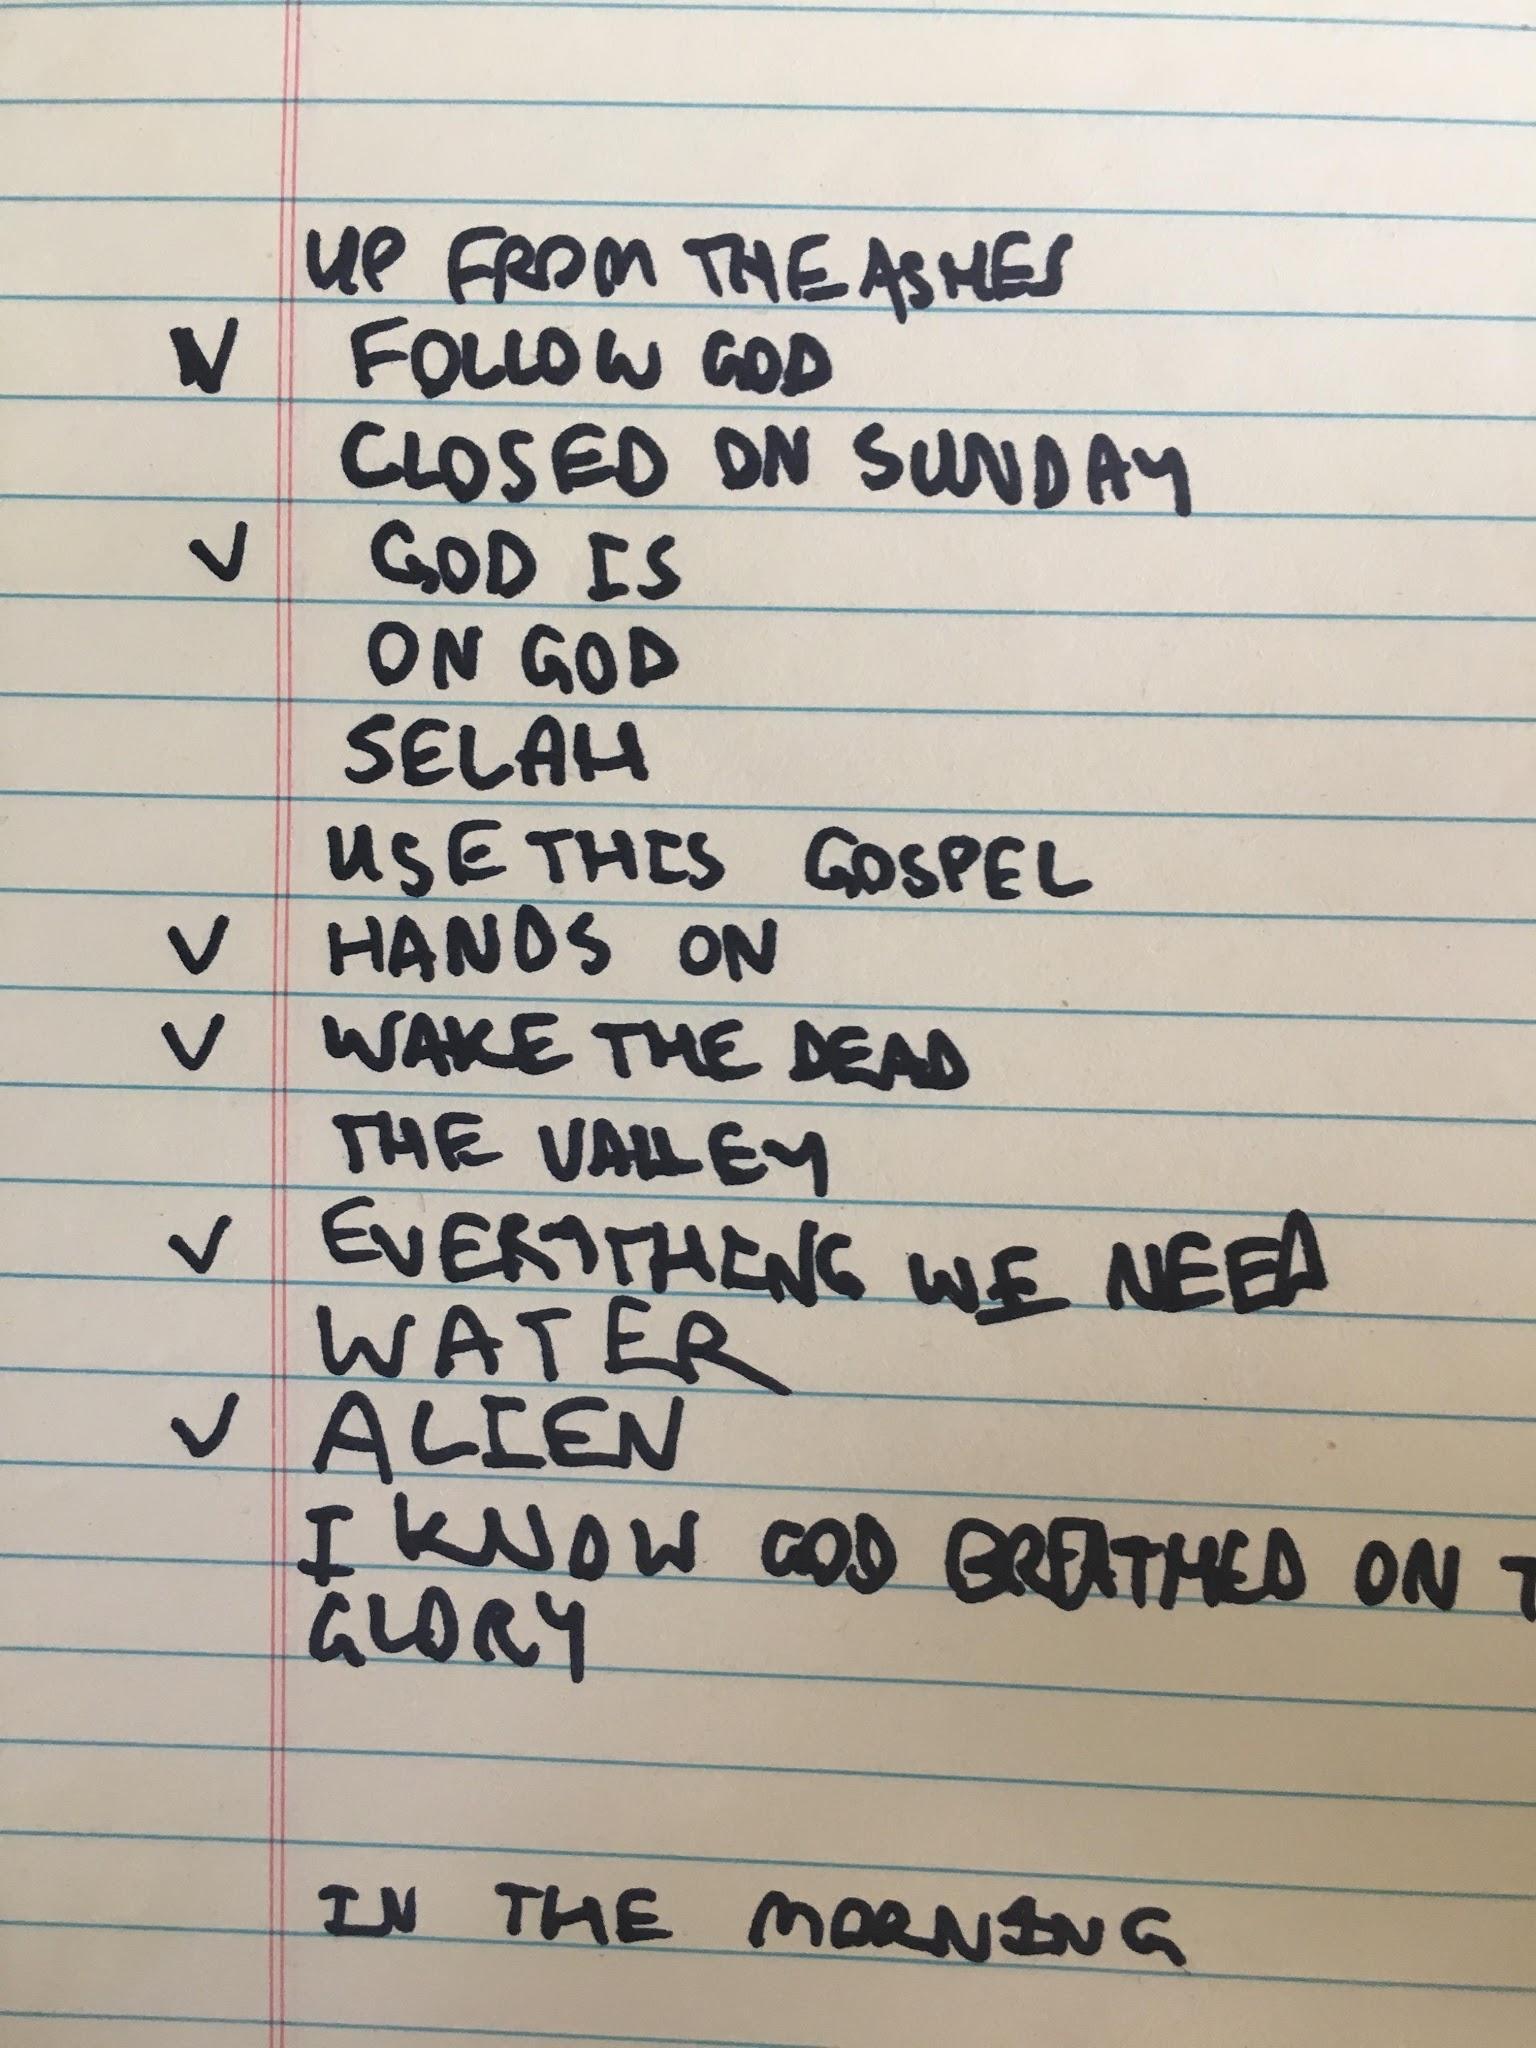 UP FROM THE ASHES
✓ FOLLOW GOD
CLOSED ON SUNDAY
✓ GOD IS
ON GOD
SELAH
USE THIS GOSPEL
✓ HANDS ON
✓ WAKE THE DEAD
THE VALLEY
✓ EVERYTHING WE NEED
WATER
✓ ALIEN
I KNOW GOD BREATHED ON
GLORY
IN THE MORNING